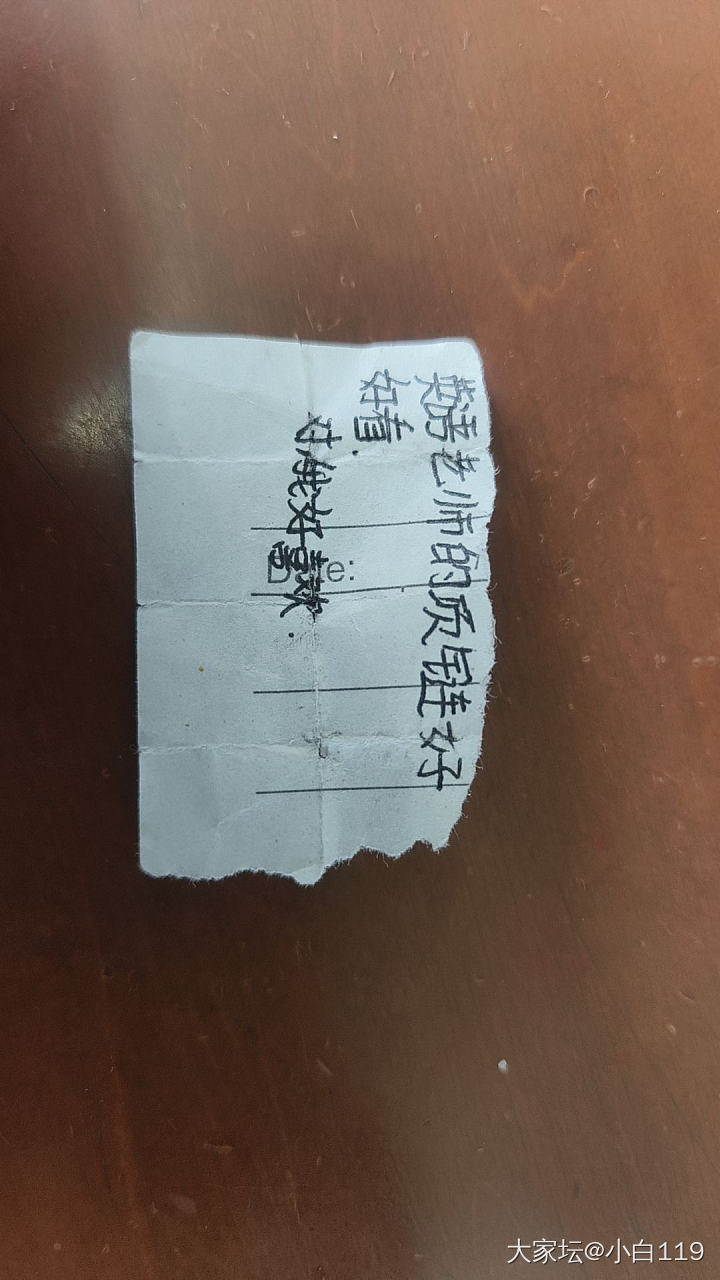 英语老师的质链好
好看.
对,我好喜欢.
Date:
大家坛@小白119